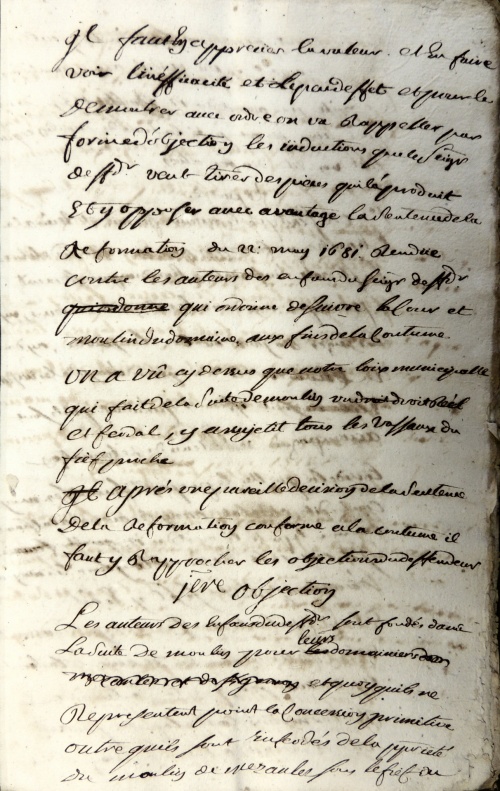 il faut en apprecier la valeur et en faire
voir linéfficacité et le peu deffet et pour le
demontrer avec ordre on va Rappeller par
forme dobjection les inductions que le Seigr
deffdr veut tirer des pieces quil à produit
Et y opposer avec avantage la Sentence de la
Reformation du 22: may 1681 Rendue
contre les auteurs des enfans du Seigr deffdr
qui ordonne qui ordonne de suivre la Cour et
moulin du domaine, aux fins de la Coutume
on a vû cy dessus que notre loix municipalle
qui fait de la Suite de moulin un droit Réél
et feodal, y assujetit tous les Vassaux du
fief proche
après une pareille decision de la Sentence
de la Reformation conforme a la coutume il
faut y Rapprocher les objections du deffendeur
1ere objection
Les auteurs des enfans du deffdr sont fondés dans
la Suite de moulin pour leurs domainiers
et quoy quils ne
Representent point la Concession primitive
outre quils sont Infeodés de la pprieté
du moulin de sous le fief du